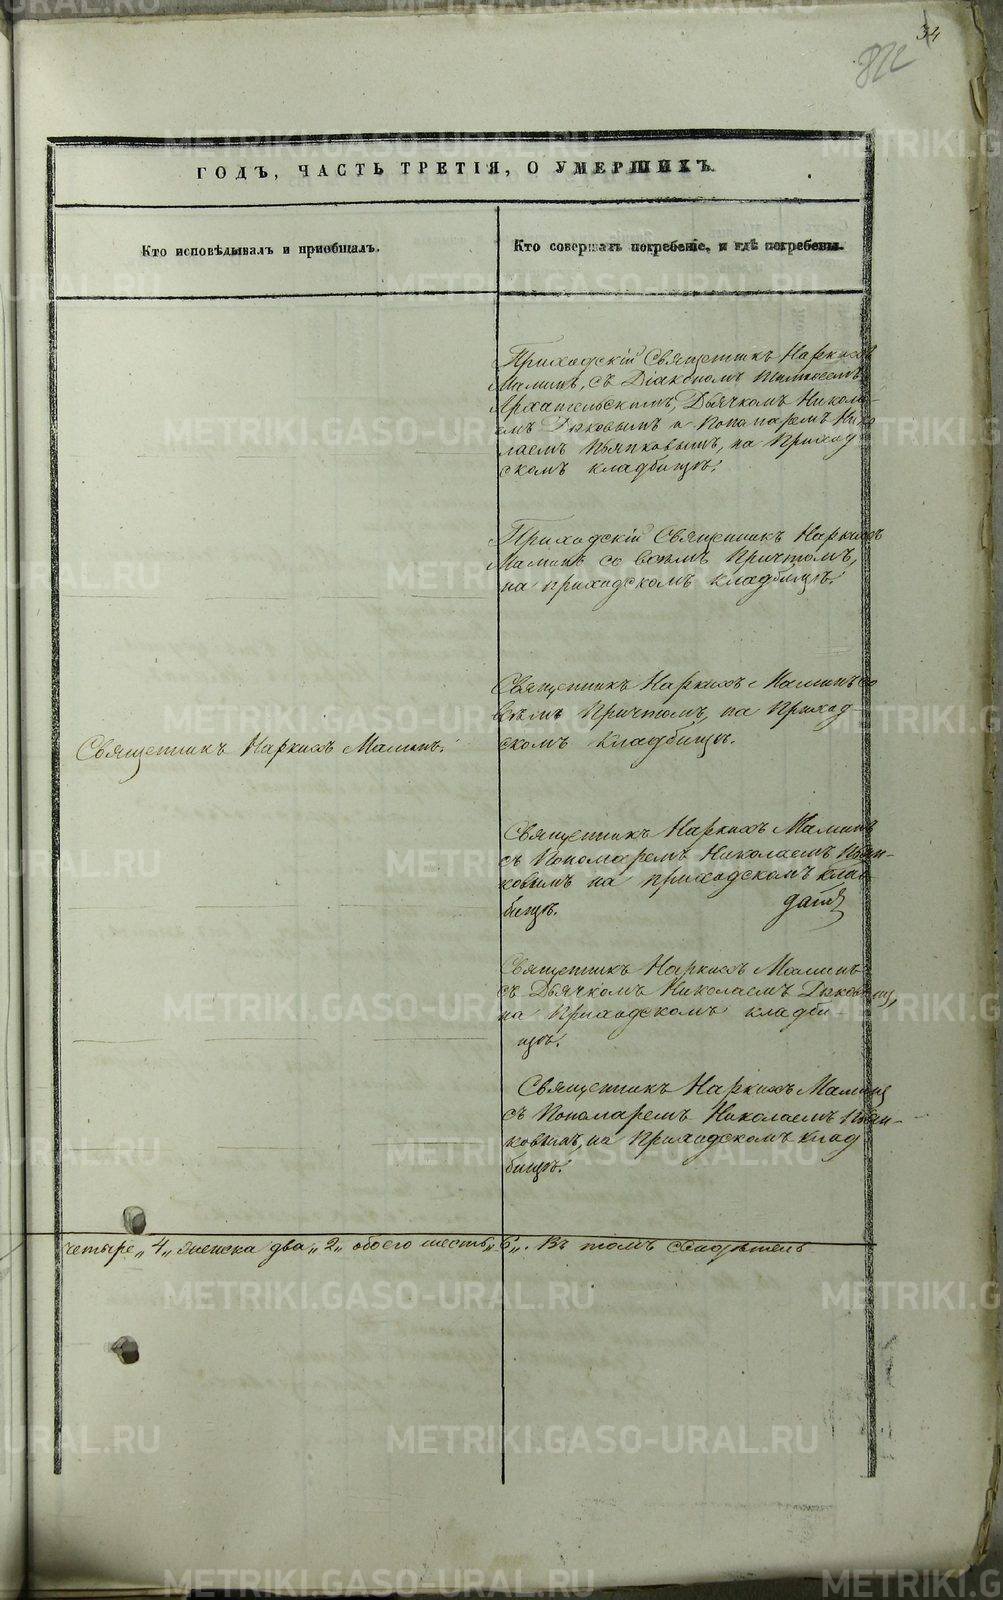 34
822
ГОДЪ, ЧАСТЬ ТРЕТІЯ, О УМЕРШИХЪ.
Кто исповѣдывалъ и пріобщалъ.
Кто совершалъ погребеніе, и гдѣ погребены.
Приходскій Священникъ Наркисъ
Маминъ, съ Діакономъ
Архангельскимъ, Дьячкомъ Никола-
емъ Диковымъ и Пономаремъ Нико
лаемъ Пьянковымъ, на Приход
скомъ кладбищѣ.
Приходскій Священникъ Наркисъ
Маминъ со всѣмъ Причтомъ,
на приходскомъ кладбищѣ.
Священникъ Наркисъ Маминъ со
всѣмъ Причтомъ, на Приход-
скомъ кладбищѣ.
Священникъ Наркисъ Маминъ.
Священникъ Наркисъ Маминъ
съ Пономаремъ Николаемъ Пьян-
ковымъ на приходскомъ клад
бищѣ.
Священникъ Наркисъ Маминъ
съ Дьячкомъ Николаемъ Диковымъ,
на Приходскомъ кладби
щѣ.
Священникъ Наркисъ Маминъ
съ Пономаремъ Николаемъ Пьян-
ковымъ, на Приходскомъ клад
бищѣ.
четыре „4„ женска два „2„ обоего шесть „6„. Въ томъ свидѣтель
METRIKI.GASO-URAL.RU